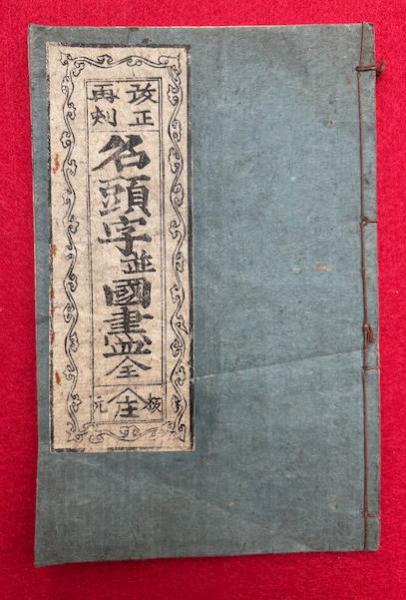 改正
再刻
名頭字並國盡全
板元